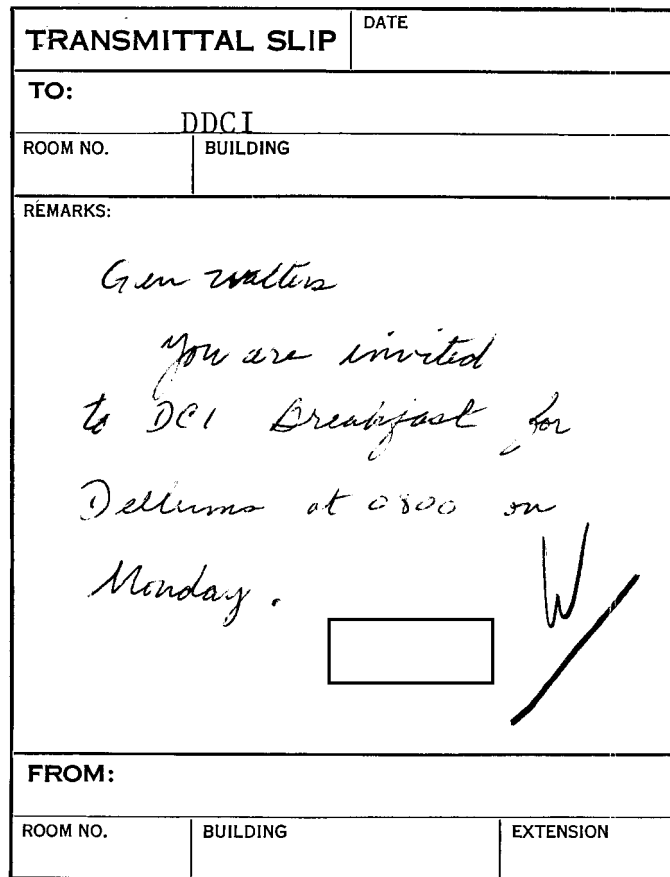 TRANSMITTAL SLIP
DATE
TO:
DDCI
ROOM NO.
BUILDING
REMARKS:
Gen Walters
You are invited
to DCI Breakfast for
Dellums at 0800 on
Monday.
W
FROM:
ROOM NO.
BUILDING
EXTENSION